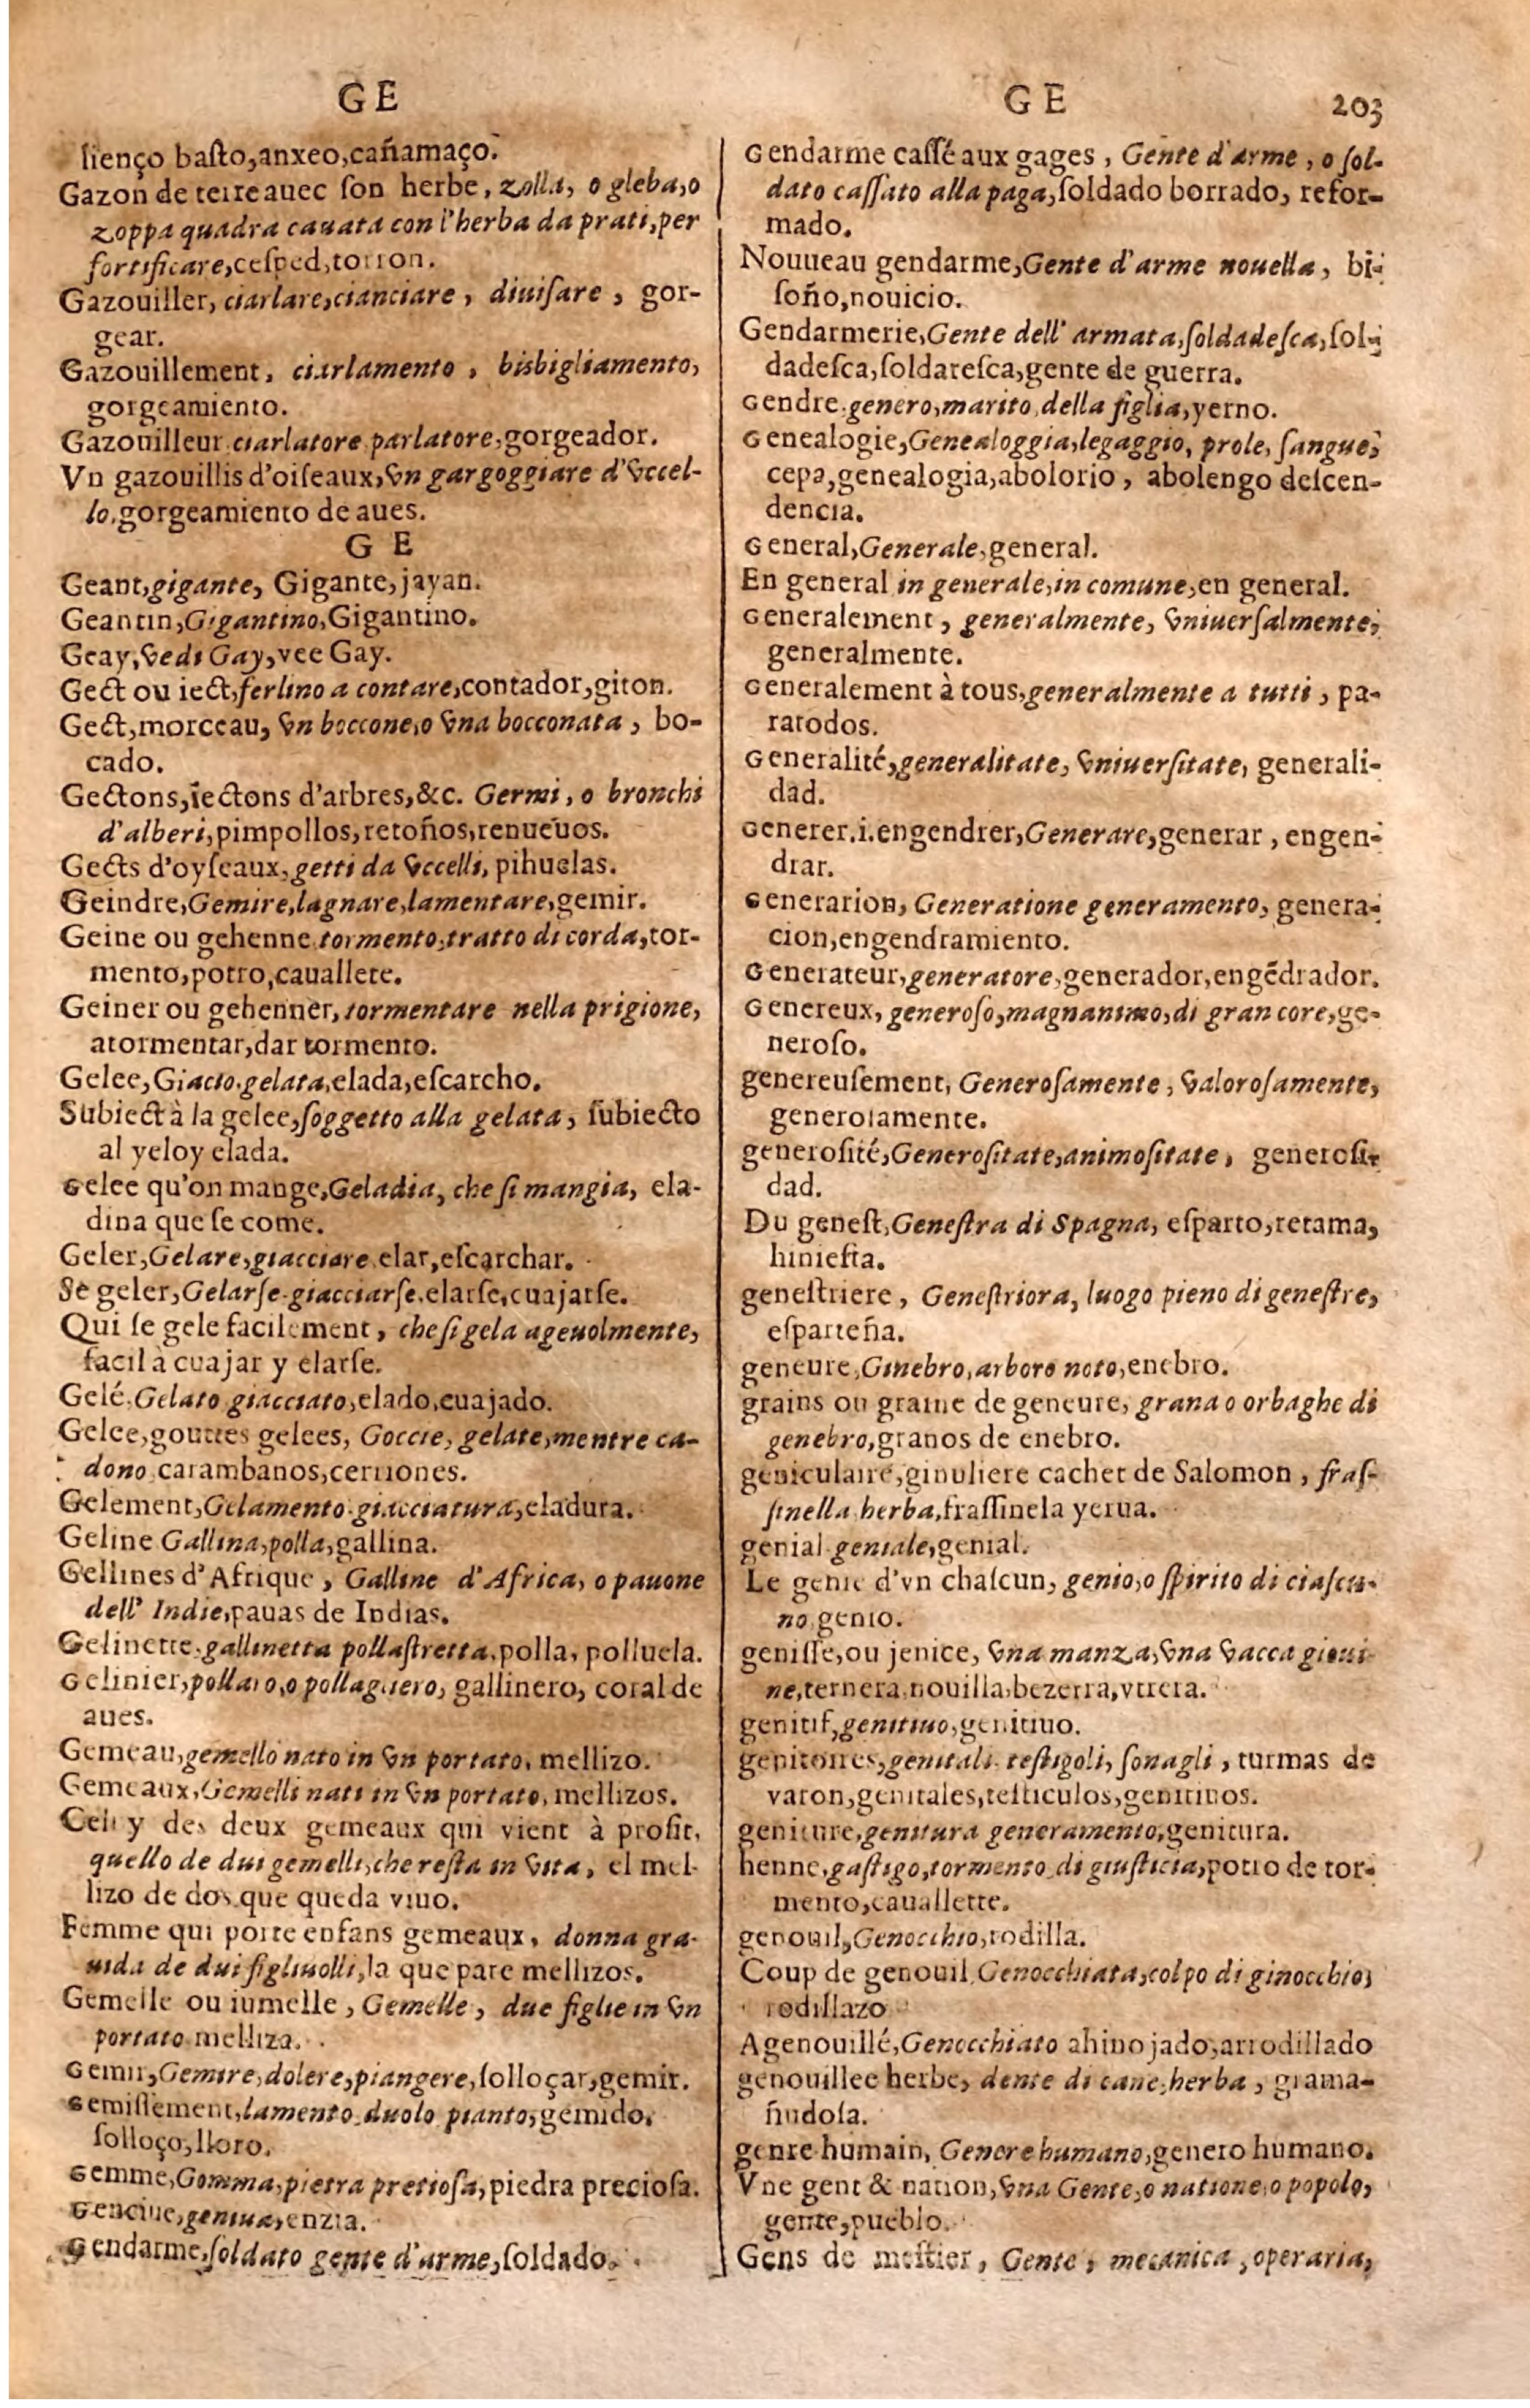 GE
ſienço baſto,anxeo,cañamaço.
Gazon de terre auec ſon herbe, zolla, o gleba,o
zoppa quadra cauata con l'herba da prati,per
fortificare,ceſped,torron.
Gazouiller, ciarlare,cianciare, diuiſare, gor-
gear.
Gazouillement, ciarlamento, bisbigliamento,
gorgeamiento.
Gazouilleur ciarlatore parlatore,gorgeador.
Vn gazouillis d'oiſeaux,vn gargoggiare d'vccel-
lo,gorgeamiento de aues.
G E
Geant,gigante, Gigante,jayan.
Geantin,Gigantino,Gigantino.
Geay,vedi Gay,vee Gay.
Gect ou iect,ferlino a contare,contador,giton.
Gect,morceau, vn boccone,o vna bocconata, bo-
cado.
Gectons,iectons d'arbres,&c. Germi, o bronchi
d'alberi,pimpollos,retoños,renueuos.
Gects d'oyſeaux,getti da vccelli, pihuelas.
Geindre,Gemire,lagnare,lamentare,gemir.
Geine ou gehenne tormento,tratto di corda,tor-
mento,potro,cauallete.
Geiner ou gehenner,tormentare nella prigione,
atormentar,dar tormento.
Gelee,Giacio.gelata,elada,eſcarcho.
Subiect à la gelee,ſoggetto alla gelata, ſubiecto
al yeloy elada.
Gelee qu'on mange,Geladia, che ſi mangia, ela-
dina que ſe come.
Geler,Gelare,giacciare elar,eſcarchar.
Se geler,Gelarſe.giacciarſe.elarſe,cuajarſe.
Qui ſe gele facilement, che ſi gela ageuolmente,
facil à cuajar y elarſe.
Gelé,Gelato giacciato,elado,cuajado.
Gelee,gouttes gelees, Goccie, gelate,mentre ca-
dono carambanos,cerriones.
Gelement,Gelamento.giacciatura,eladura.
Geline Gallina,polla,gallina.
Gellines d'Afrique, Galline d'Africa, o pauone
dell' Indie,pauas de Indias.
Gelinette.gallinetta pollaſtretta,polla, polluela.
Gelinier,pollaio,o pollaguero, gallinero, coral de
aues.
Gemeau,gemello nato in vn portato, mellizo.
Gemeaux,Gemelli nati in vn portato, mellizos.
Celuy des deux gemeaux qui vient à profit,
quello de dui gemelli,che reſta in vita, el mel-
lizo de dos que queda viuo.
Femme qui porte enfans gemeaux, donna gra-
uida de dui figliuolli,la que pare mellizos.
Gemelle ou iumelle, Gemelle, due figlie in vn
portato melliza.
Gemir,Gemire,dolere,piangere,ſolloçar,gemir.
Gemiſſement,lamento duolo pianto,gemido,
ſolloço,lloro.
Gemme,Gomma,pietra pretioſa,piedra precioſa.
Genciue,geniua,enzia.
Gendarme,ſoldato gente d'arme,ſoldado.
GE 203
Gendarme caſſé aux gages, Gente d'arme, o ſol-
dato caſſato alla paga,ſoldado borrado, refor-
mado.
Nouueau gendarme,Gente d'arme nouella, bi-
ſoño,nouicio.
Gendarmerie,Gente dell' armata,ſoldadeſca,ſol-
dadeſca,ſoldareſca,gente de guerra.
Gendre.genero,marito della figlia,yerno.
Genealogie,Genealoggia,legaggio, prole, ſangue,
cepa,genealogia,abolorio, abolengo deſcen-
dencia.
General,Generale,general.
En general in generale,in comune,en general.
Generalement, generalmente, vniuerſalmente,
generalmente.
Generalement à tous,generalmente a tutti, pa-
ratodos.
Generalité,generalitate, vniuerſitate, generali-
dad.
Generer.i.engendrer,Generare,generar, engen-
drar.
Generarion, Generatione generamento, genera-
cion,engendramiento.
Generateur,generatore,generador,engẽdrador.
Genereux, generoſo,magnanimo,di gran core,ge-
neroſo.
genereuſement, Generoſamente, valoroſamente,
generoſamente.
generoſité,Generoſitate,animoſitate, generoſi-
dad.
Du geneſt,Geneſtra di Spagna, eſparto,retama,
hinieſta.
geneſtriere, Geneſtriora, luogo pieno di geneſtre,
eſparteña.
geneure,Ginebro,arboro noto,enebro.
grains ou graine de geneure, grana o orbaghe di
genebro,granos de enebro.
geniculaire,ginuliere cachet de Salomon, fraſ-
ſinella herba,fraſſinela yerua.
genial geniale,genial.
Le genie d'vn chaſcun, genio,o ſpirito di ciaſcu-
no genio.
geniſſe,ou jenice, vna manza,vna vacca gioui-
ne,ternera,nouilla,bezerra,vtrera.
genitif,genitiuo,genitiuo.
genitoires,genitali teſtigoli, ſonagli, turmas de
varon,genitales,teſticulos,genitiuos.
geniture,genitura generamento,genitura.
henne,gaſtigo,tormento di giuſticia,potro de tor-
mento,cauallette.
genouil,Genocchio,rodilla.
Coup de genouil Genocchiata,colpo di ginocchio,
rodillazo
Agenouillé,Genocchiato ahinojado,arrodillado
genouillee herbe, dente di cane,herba, grama-
ñudoſa.
genre humain, Genere humano,genero humano.
Vne gent & nation,vna Gente,o natione,o popolo,
gente,pueblo.
Gens de meſtier, Gente, mecanica, operaria,